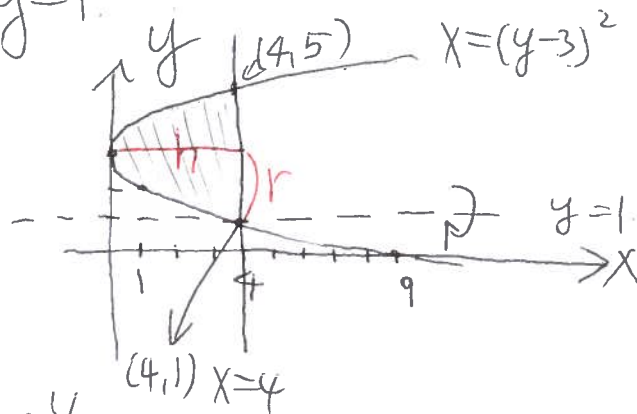 y=1
y
(4,5)
X=(y-3)²
h
r
y=1
1
4
9
X
(4,1)
X=4